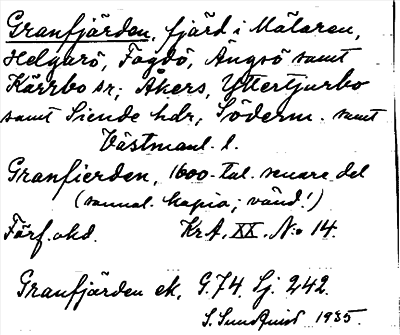 Granfjärden, fjärd i Mälaren,
Helgarö, Fogdö, Ängsö samt
Kärrbo sr; Åkers, Yttertjurbo
samt Siende hdr, Söderm. samt
Västmanl. l.
Granfierden, 1600-tal. senare del
(samml. kopia; vänd!)
Förf. okd. Kr. A. XX. No 14.
Granfjärden ek. G.74. Lj. 242.
S. Sundquist 1935.